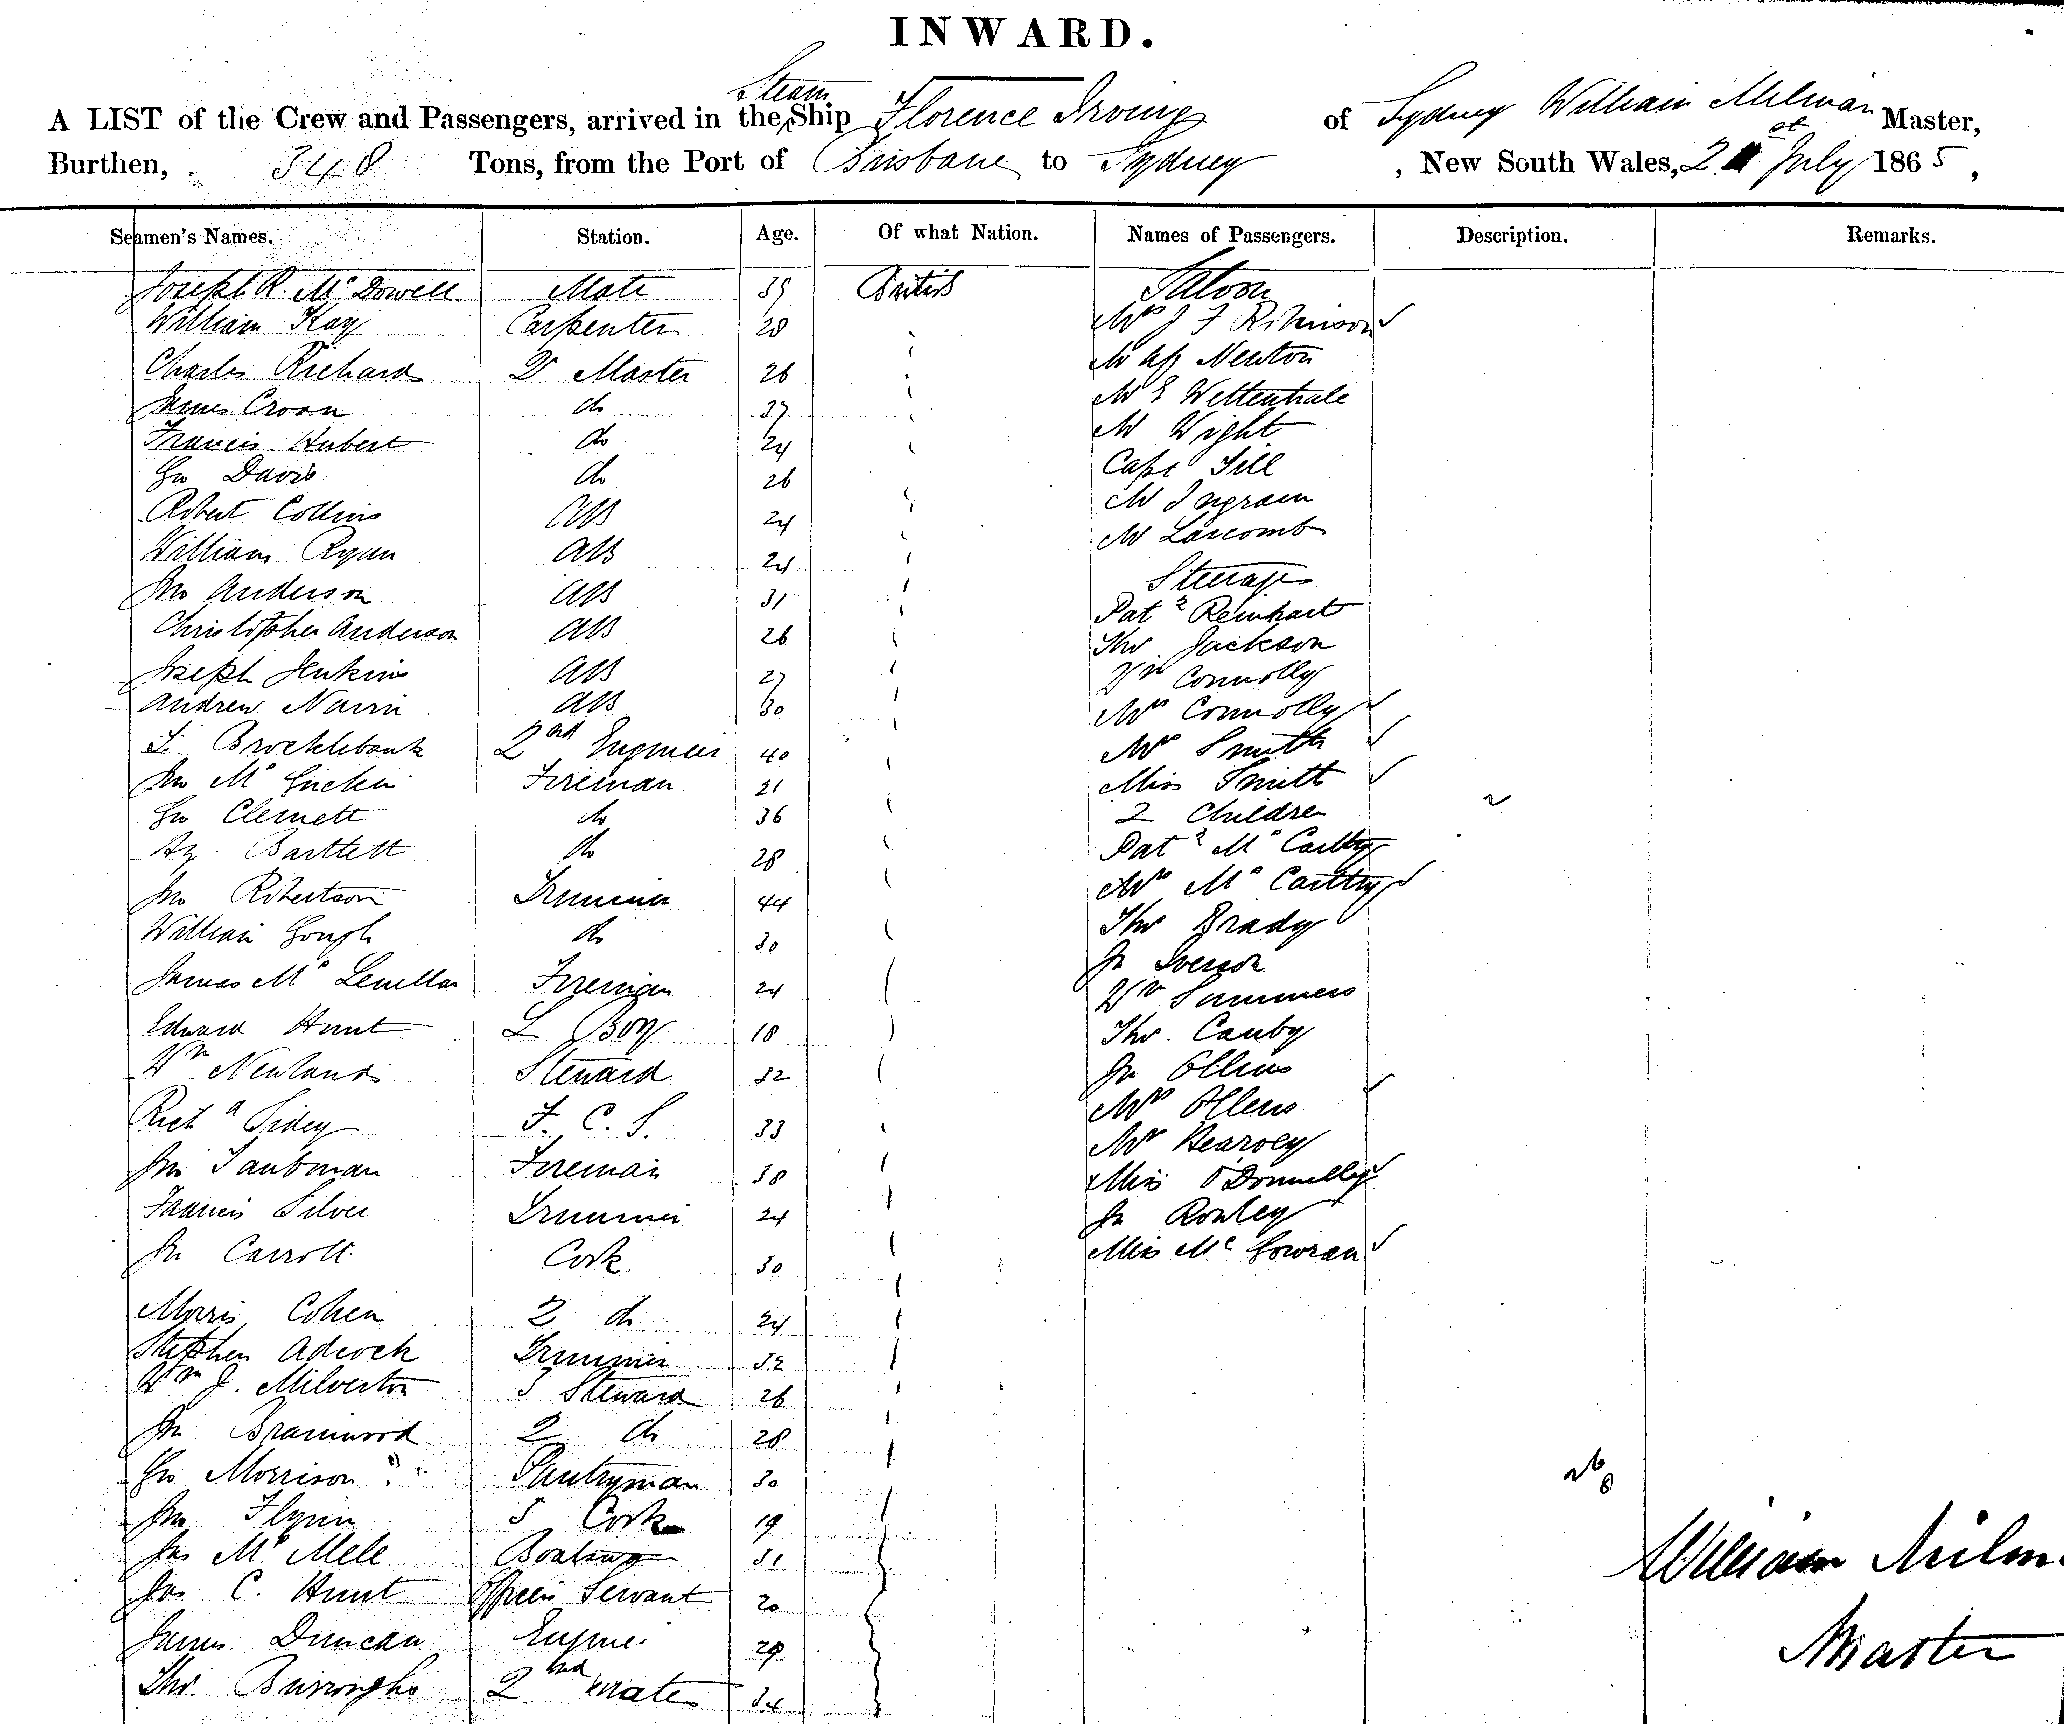 INWARD.
A LIST of the Crew and Passengers, arrived in the Steam Ship Florence Irving of Sydney William Milman Master,
Burthen, 348 Tons, from the Port of Brisbane to Sydney, New South Wales, 2 st July 1865,
Seamen's Names. Station. Age. Of what Nation. Names of Passengers. Description. Remarks.
Joseph R. McDowell Mate 39 British Saloon
William Kay Carpenter 28 Mrs J F Robinson
Charles Richard Qr Master 26 Mr Newton
James Croan do 37 Mr E Wettenhale
Francis Hubert do 24 Mr Wight
Geo Davis do 26 Capt Till
Robert Collins AB 24 Mr Ingram
William Ryan AB 24 Mr Larcomb
Jno Anderson AB 31 Steerage
Christopher Anderson AB 26 Patk Reinhart
Joseph Jenkins AB 27 Thos Jackson
Andrew Navin AB 30 Wm Connolly
T Brocklebank 2nd Engineer 40 Mrs Connolly
Jno Mc Fireman 21 Mrs Smith
Geo Clemett do 36 Miss Smith
Hy Bartlett do 28 2 Children
Jno Robertson Trimmer 44 Patk McCarthy
William Gough do 30 Mrs McCarthy
James McLenellan Fireman 24 Thos Brady
Edward Hunt L Boy 18 Jn Iverson
Wm Newlands Steward 32 Wm Summers
Richd Sidey F. C. S. 33 Thos. Canby
Jno Taubman Foreman 38 Jn Ollens
Francis Silver Trimmer 24 Mrs Ollens
Jn Carroll Cook 30 Mr Hearoey
Morris Cohen 2 do 24 Miss O'Donnelley
Stephen Adcock Trimmer 32 Jn Rowley
Wm J. Milverton S Steward 26 Miss McGowran
Jn Bramwood 2 do 28
Geo Morrison Pantryman 30
Jno Flynn S Cook 19
Jas McMele Boatswn 31
Jas C. Hunt Officers Servant 20
James Duncan Engineer 29
Thos. Burroughs 2nd mate 34
26
8
William Milman
Master